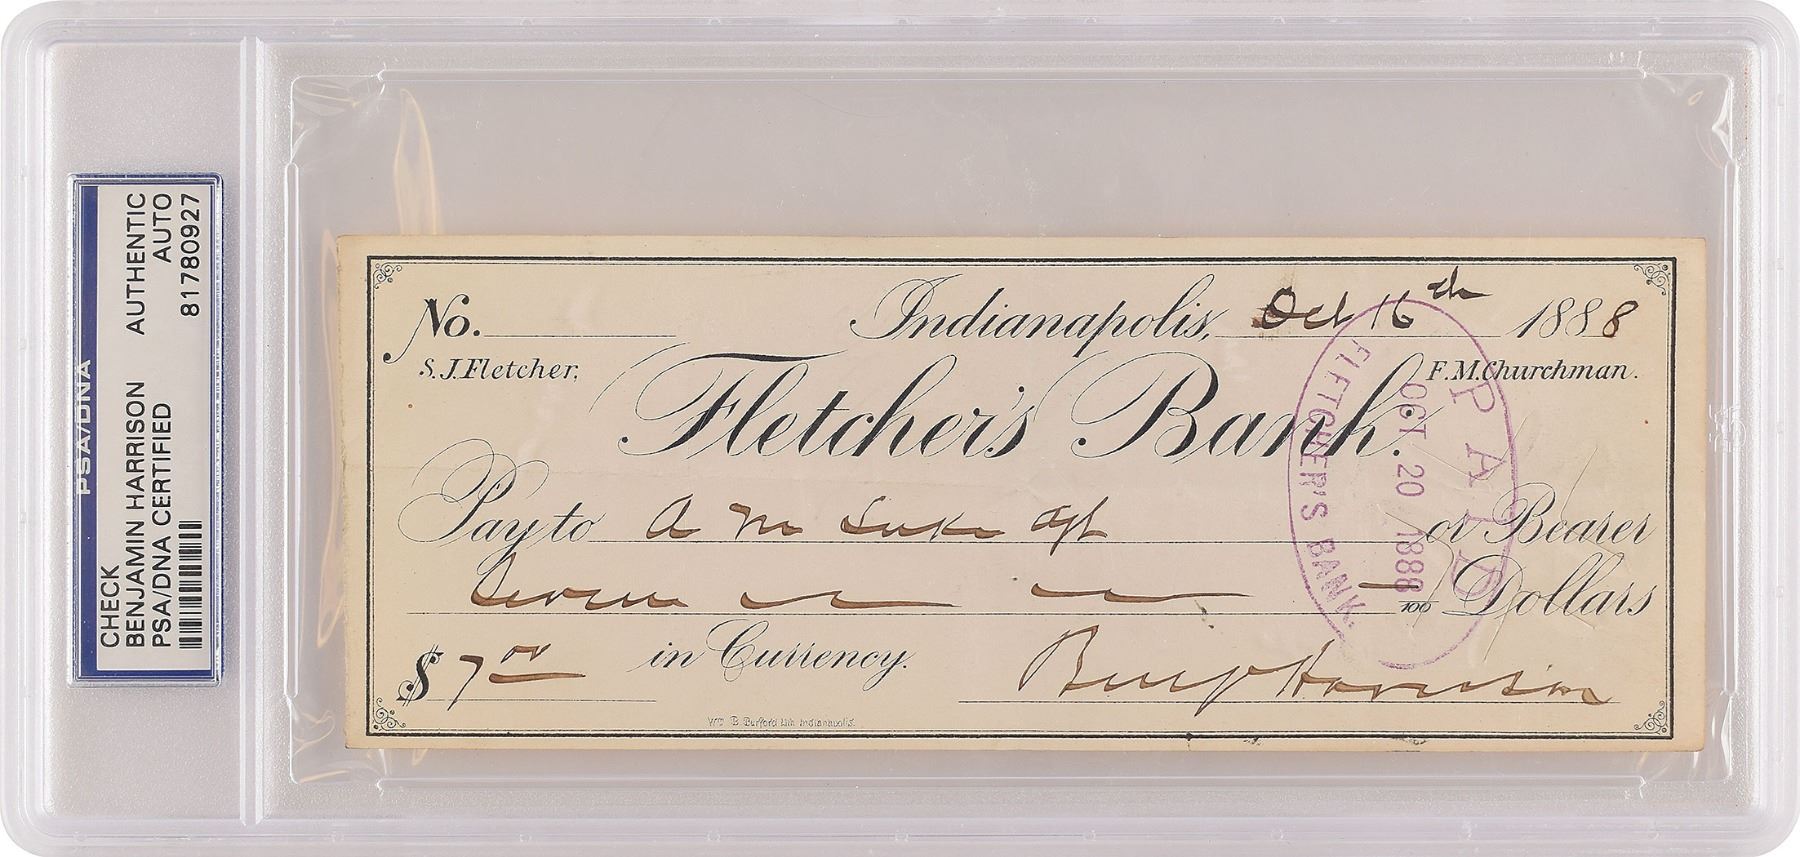 PSA/DNA
CHECK
BENJAMIN HARRISON AUTHENTIC
PSA/DNA CERTIFIED AUTO
81780927
No. Indianapolis, Oct 16th 1888
S. J. Fletcher. F. M. Churchman.
Fletcher's Bank.
Pay to A M agt or Bearer
Seven 100 Dollars
$ 7 00 in Currency. Benj Harrison
Wm B. Burford Lith. Indianapolis.
PAID
OCT. 20 1888
FLETCHER'S BANK.